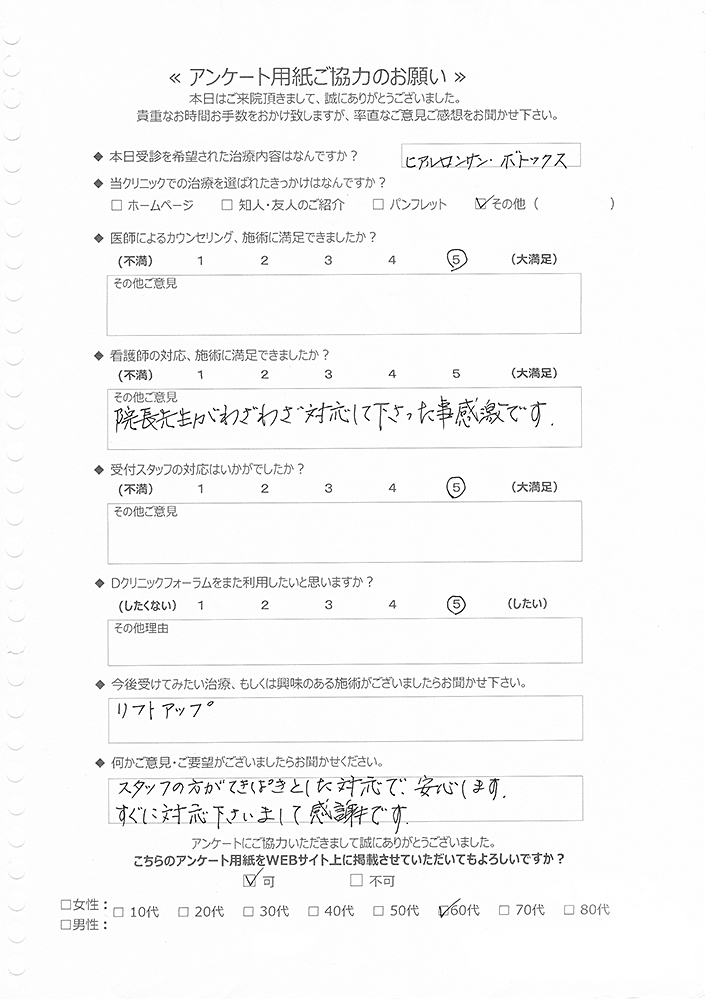 ≪ アンケート用紙ご協力のお願い ≫
本日はご来院頂きまして、誠にありがとうございました。
貴重なお時間お手数をおかけ致しますが、率直なご意見ご感想をお聞かせ下さい。
◆ 本日受診を希望された治療内容はなんですか？ ヒアルロンサン・ボトックス
◆ 当クリニックでの治療を選ばれたきっかけはなんですか？
□ ホームページ □ 知人・友人のご紹介 □ パンフレット ☑ その他（ ）
◆ 医師によるカウンセリング、施術に満足できましたか？
(不満) 1 2 3 4 ⑤ (大満足)
その他ご意見
◆ 看護師の対応、施術に満足できましたか？
(不満) 1 2 3 4 5 (大満足)
その他ご意見
院長先生がわざわざ対応して下さった事感激です.
◆ 受付スタッフの対応はいかがでしたか？
(不満) 1 2 3 4 ⑤ (大満足)
その他ご意見
◆ Dクリニックフォーラムをまた利用したいと思いますか？
(したくない) 1 2 3 4 ⑤ (したい)
その他理由
◆ 今後受けてみたい治療、もしくは興味のある施術がございましたらお聞かせ下さい。
リフトアップ
◆ 何かご意見・ご要望がございましたらお聞かせください。
スタッフの方がてきぱきとした対応で、安心します.
すぐに対応下さいまして感謝です.
アンケートにご協力いただきまして誠にありがとうございました。
こちらのアンケート用紙をWEBサイト上に掲載させていただいてもよろしいですか？
☑ 可 □ 不可
□女性： □ 10代 □ 20代 □ 30代 □ 40代 □ 50代 ☑60代 □ 70代 □ 80代
□男性：